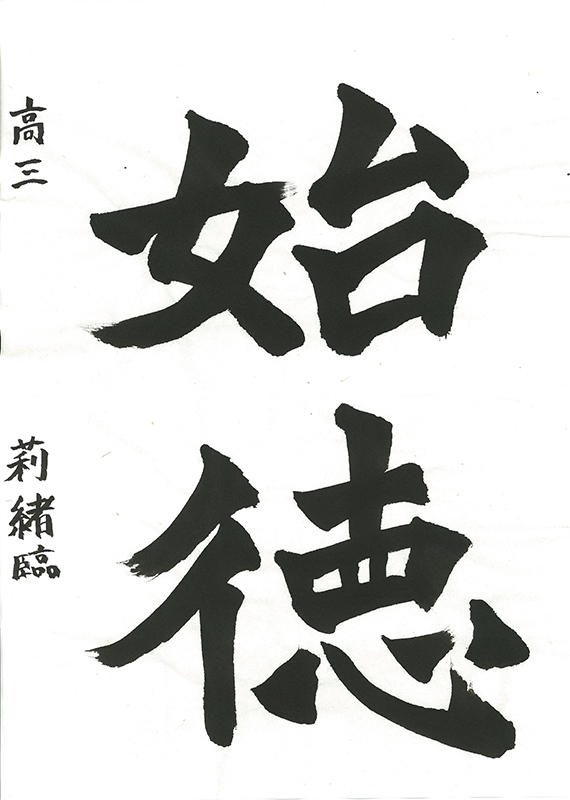 始徳
高三 莉緒臨